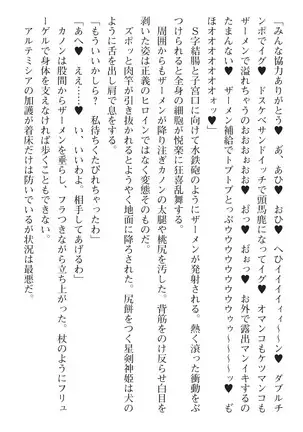 「みんな協力ありがとう♥ あ、あひ♥ おひ♥ へひイイイイィ〜〜ン♥ ダブルチ
ンポでイグ♥ ドスケベサンドイッチで頭馬鹿になってイグ♥ オマンコもケツマンコも
ザーメンで溢れちゃうのおおおおぉ♥ おっ♥ ぢぉっ♥ お外で露出マンイキするの
たまんない♥ ザーメン補給でトプトプとっぷウゥウウウウゥウウウウゥ〜〜〜ッ♥ ぢ
ほオオオオオオオオオォッ♥」
　S字結腸と子宮口に向けて水鉄砲のようにザーメンが発射される。熱く滾った衝動をぶ
つけられると全身の細胞が悦楽に狂喜乱舞する。
　周囲からもザーメンが降り注ぎカノンの太腿と桃尻を汚した。背筋をのけ反らせ白目を
剥いた姿は正義のヒロインではなく変態そのものだ。
　ズポッと肉竿が引き抜かれるとようやく地面に降ろされた。尻餅をつく星剣神姫は犬の
ように舌を出し肩で息をする。
「もういいかしら？ 私待ちくたびれちゃったわ」
「あへ♥ ええ……♥ い、いいわよ。相手してあげるわ」
　カノンは股間からザーメンを垂らし、フラつきながら立ち上がった。杖のようにフリュ
ーゲルで身体を支えなければ歩くこともできない。
　アルテミシアの加護が着床だけは防いでいるが状況は最悪だ。